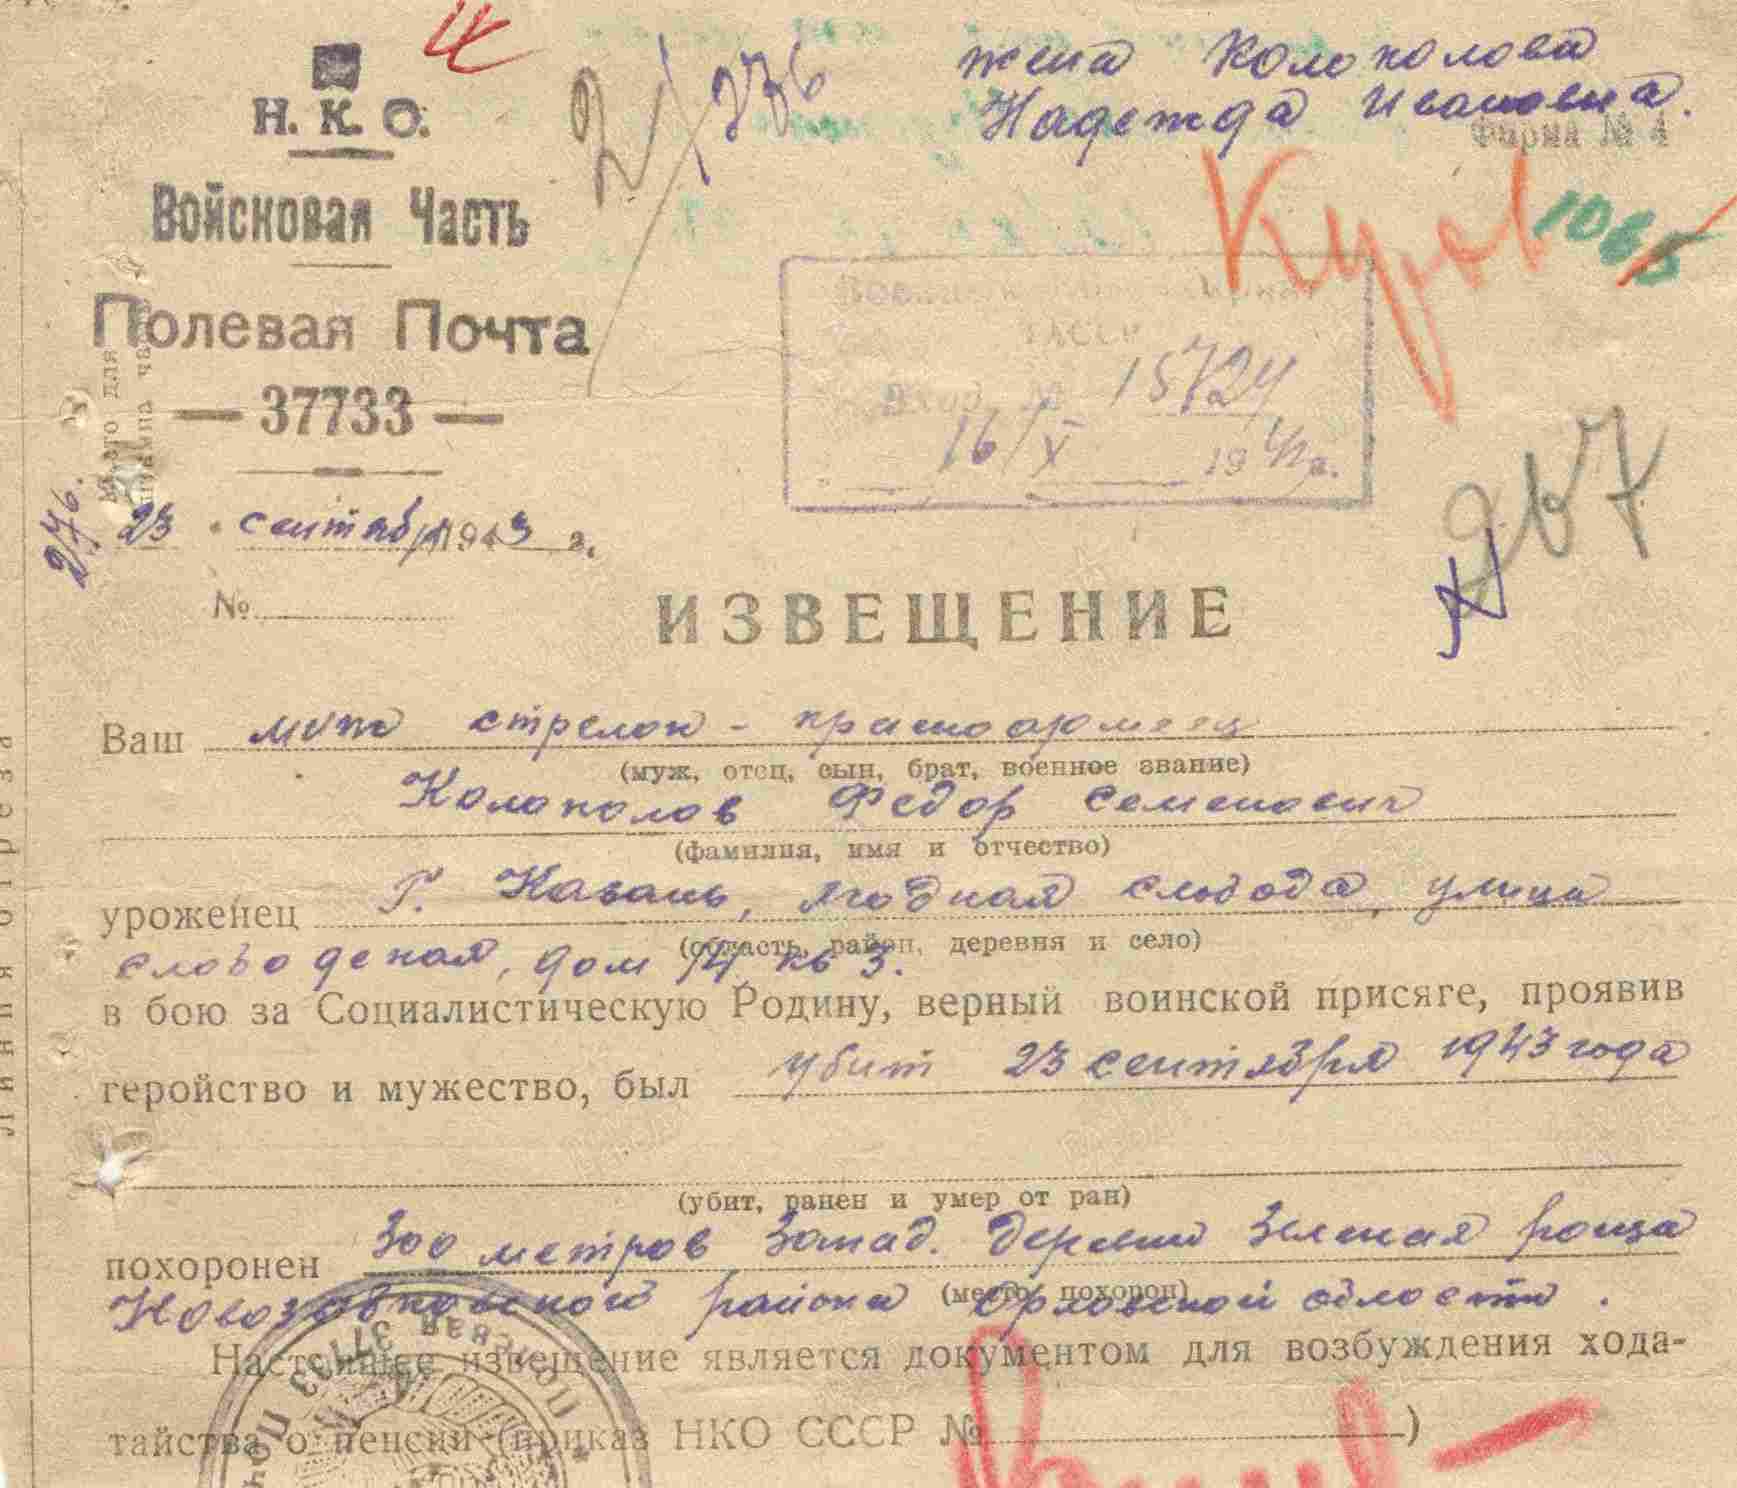 Н. К. О.
Войсковая Часть
Полевая Почта
— 37733 —
2/336
жена Колоколова
Надежда Ивановна.
Форма № 4
Куров
1065
АССР
Вход. № 15724
16/X 1944 г.
276.
23 " сентября 1943 г.
№
ИЗВЕЩЕНИЕ
Ваш муж стрелок - красноармеец
(муж, отец, сын, брат, военное звание)
Колоколов Федор Семенович
(фамилия, имя и отчество)
уроженец г. Казань, Ягодная слобода, улица
(область, район, деревня и село)
слободская, дом 14 кв 3.
в бою за Социалистическую Родину, верный воинской присяге, проявив
геройство и мужество, был убит 23 сентября 1943 года
(убит, ранен и умер от ран)
похоронен 300 метров запад. деревни Зеленая роща
(место похорон)
Новозыбковской района Орловской области.
Настоящее извещение является документом для возбуждения хода-
тайства о пенсии (приказ НКО СССР № )
Линия отреза
место для
37733